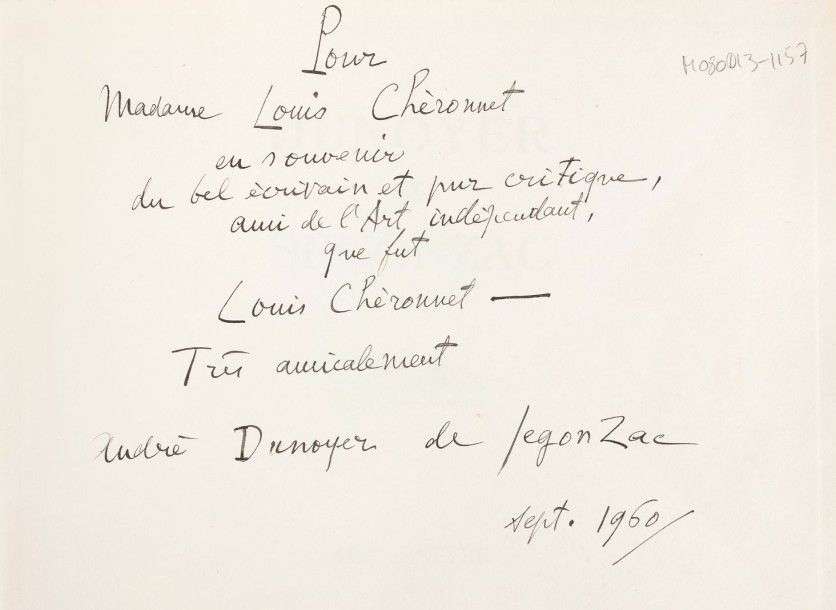 Pour
Madame Louis Chéronnet
en souvenir
du bel écrivain et pur critique,
ami de l'Art indépendant,
que fut
Louis Chéronnet —
Très amicalement
André Dunoyer de Segonzac
sept. 1960